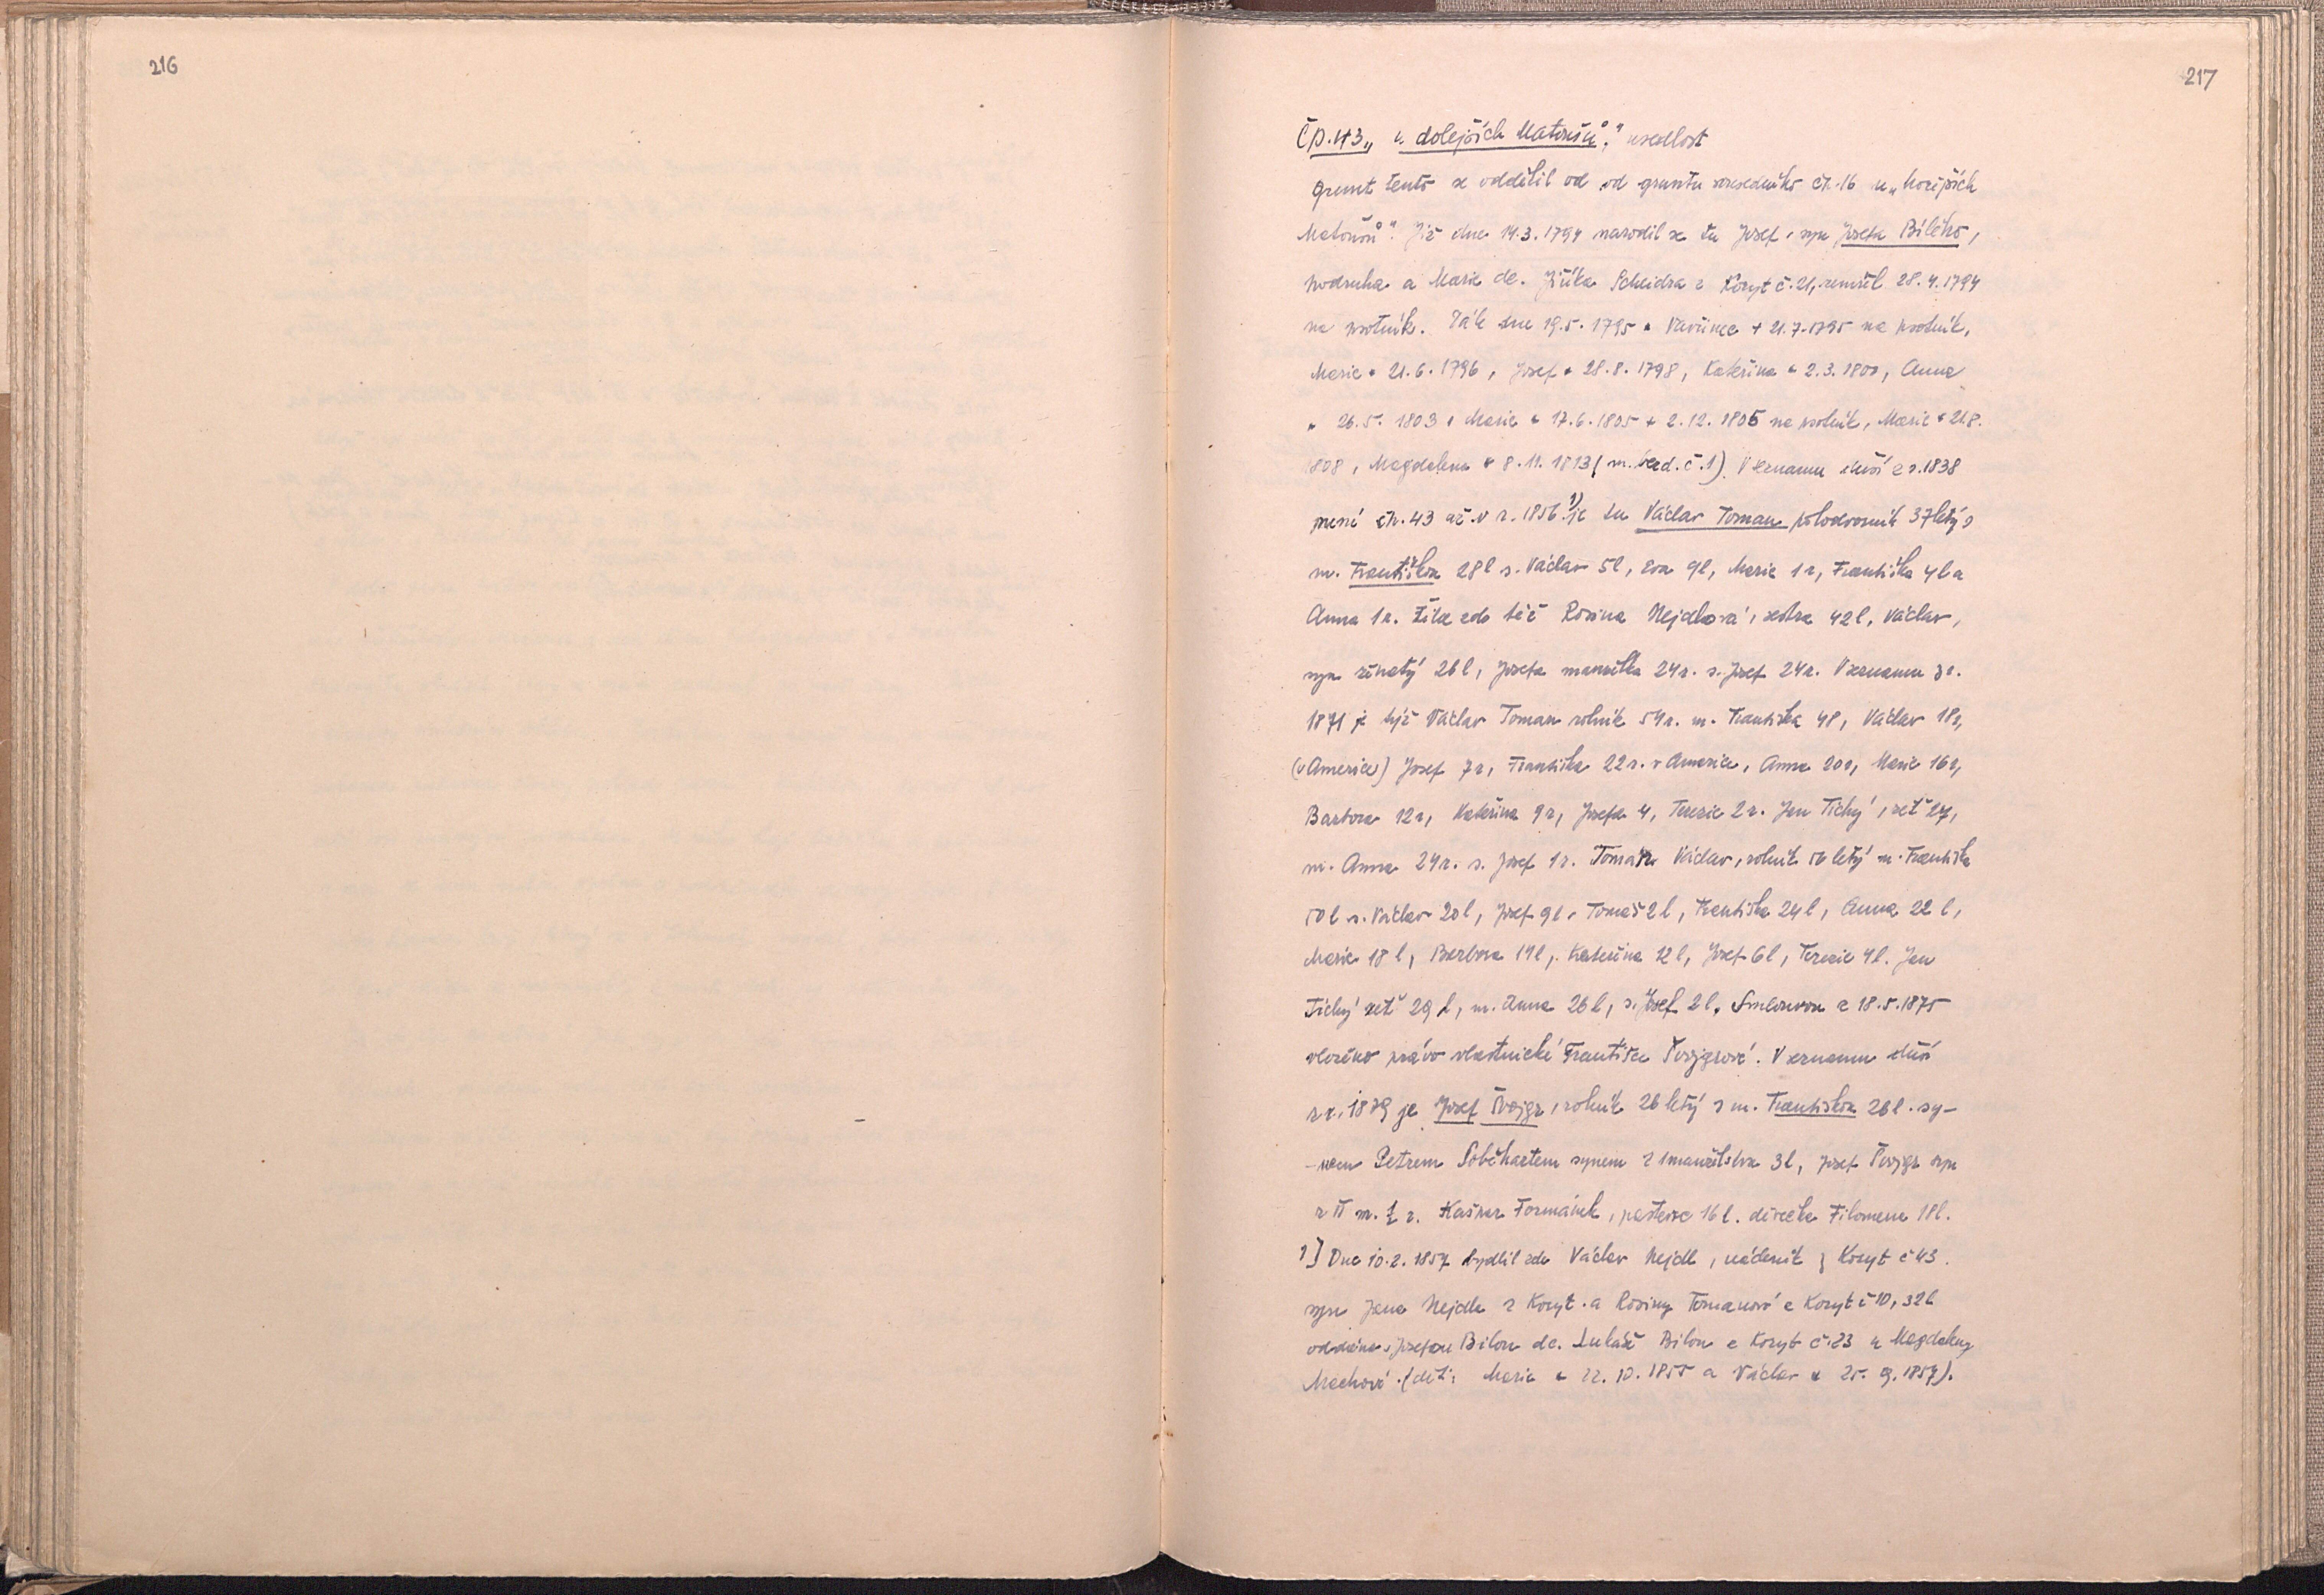 216
217
Čp. 43 „u dolejších Matoušů", usedlost
Grunt tento se oddělil od od gruntu sousedního čp. 16 u „hořejších
Matoušů". Již dne 14.3.1794 narodil se tu Josef, syn Josefa Bílého,
podruha a Marie dc. Jiříka Scheidra z Koryt č. 21, zemřel 28.4.1794
na psotník. Také dne 19.5.1795 * Vavřinec + 21.7.1795 na psotník,
Marie * 21.6.1796, Josef * 28.8.1798, Kateřina * 2.3.1800, Anna
* 26.5.1803, Marie * 17.6.1805 + 2.12.1805 na psotník, Marie * 21.8.
1808, Magdalena * 8.11.1813 (m. č. 1). V seznamu duší z r. 1838
není čp. 43 až v r. 1856 1) je tu Václav Toman polodvorník 37letý s
m. Františkou 28 l s. Václav 5 l, Eva 9 l, Marie 1 r, Františka 4 l a
Anna 1 r. Žila zde též Rosina Nejdlová, sestra 42 l, Václav,
syn ženatý 26 l, Josefa manželka 24 r. s. Josef 24 r. V seznamu z r.
1871 je týž Václav Toman rolník 54 r. m. Františka 48, Václav 18 r,
(v Americe) Josef 7 r, Františka 22 r. v Americe, Anna 20 r, Marie 16 r,
Barbora 12 r, Kateřina 9 r, Josefa 4, Terezie 2 r. Jan Tichý, zeť 27,
m. Anna 24 r. s. Josef 1 r. Toman Václav, rolník letý m. Františka
50 l s. Václav 20 l, Josef 9 l, Tomáš 2 l, Františka 24 l, Anna 22 l,
Marie 18 l, Barbora 14 l, Kateřina 12 l, Josef 6 l, Terezie 4 l. Jan
Tichý zeť 29 l, m. Anna 26 l, s. Josef 2 l. Smlouvou z 18.5.1875
vloženo právo vlastnické Františce Švojgrové. V seznamu duší
z r. 1879 je Josef Švojgr, rolník 26 letý s m. Františkou 26 l. sy-
-nem Petrem synem z I manželstva 3 l, Josef Švojgr syn
z II m. ½ r. Kašpar Formánek, pastevec 16 l. děvečka Filomena 18 l.
1) Dne 10.2.1857 bydlil zde Václav Nejdl, nádeník z Koryt č 43.
syn Jana Nejdla z Koryt a Rosiny Tomanové z Koryt č 10, 32 l
oddán s Josefou Bílou dc. Lukáš Bílou z Koryt č. 23 a Magdaleny
Machové. (děti: Marie * 22.10.1855 a Václav * 25.9.1857).